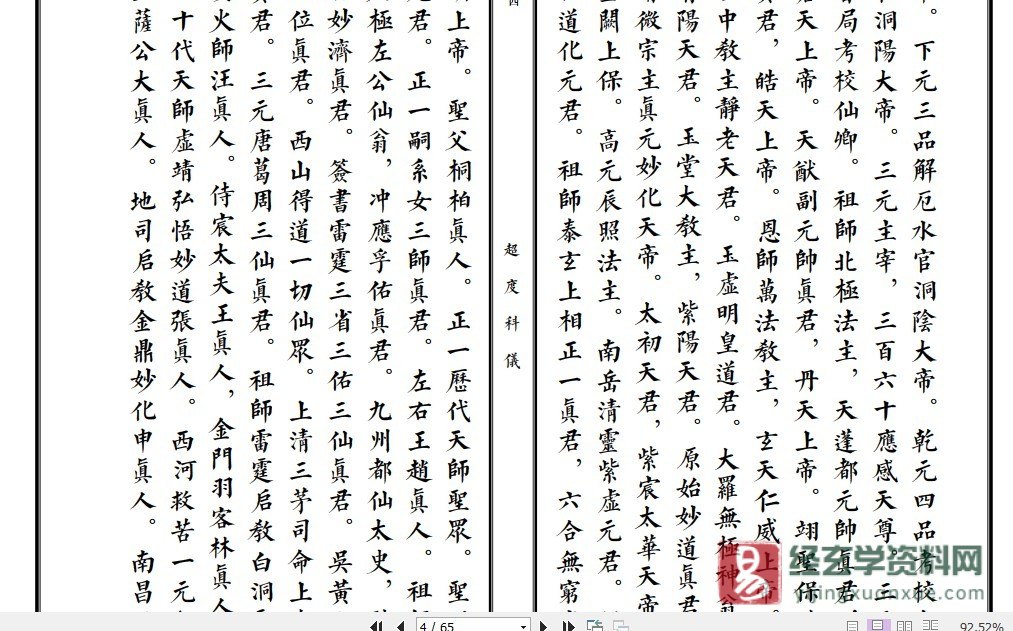 下元三品解厄水官洞陰大帝。 乾元四品考校
洞陽大帝。 三元主宰，三百六十應感天尊。 三
局考校仙卿。 祖師北極法主，天蓬都元帥眞君
天上帝。 天猷副元帥眞君，丹天上帝。 翊聖保
眞君，皓天上帝。 恩師萬法教主，玄天仁威上帝。
中教主靜老天君。 玉虛明皇道君。 大羅無極神
陽天君。 玉堂大教主，紫陽天君。 原始妙道眞君
微宗主眞元妙化天帝。 太初天君，紫宸太華天帝
闕上保。 高元辰照法主。 南岳清靈紫虛元君。
道化元君。 祖師泰玄上相正一眞君，六合無窮
超度科儀
上帝。 聖父桐柏眞人。 正一歷代天師聖眾。 聖
君。 正一嗣系女三師眞君。 左右王趙眞人。 祖
極左公仙翁，冲應孚佑眞君。 九州都仙太史，
妙濟眞君。 簽書雷霆三省三佑三仙眞君。 吳黃
位眞君。 西山得道一切仙眾。 上清三茅司命上
君。 三元唐葛周三仙眞君。 祖師雷霆启教白洞
火師汪眞人。 侍宸太夫王眞人，金門羽客林眞人
十代天師虛靖弘悟妙道張眞人。 西河救苦一元
薩公大眞人。 地司启教金鼎妙化申眞人。 南昌
易
经玄学资料网
yijingxuanxue.com
4 / 65
92.52%